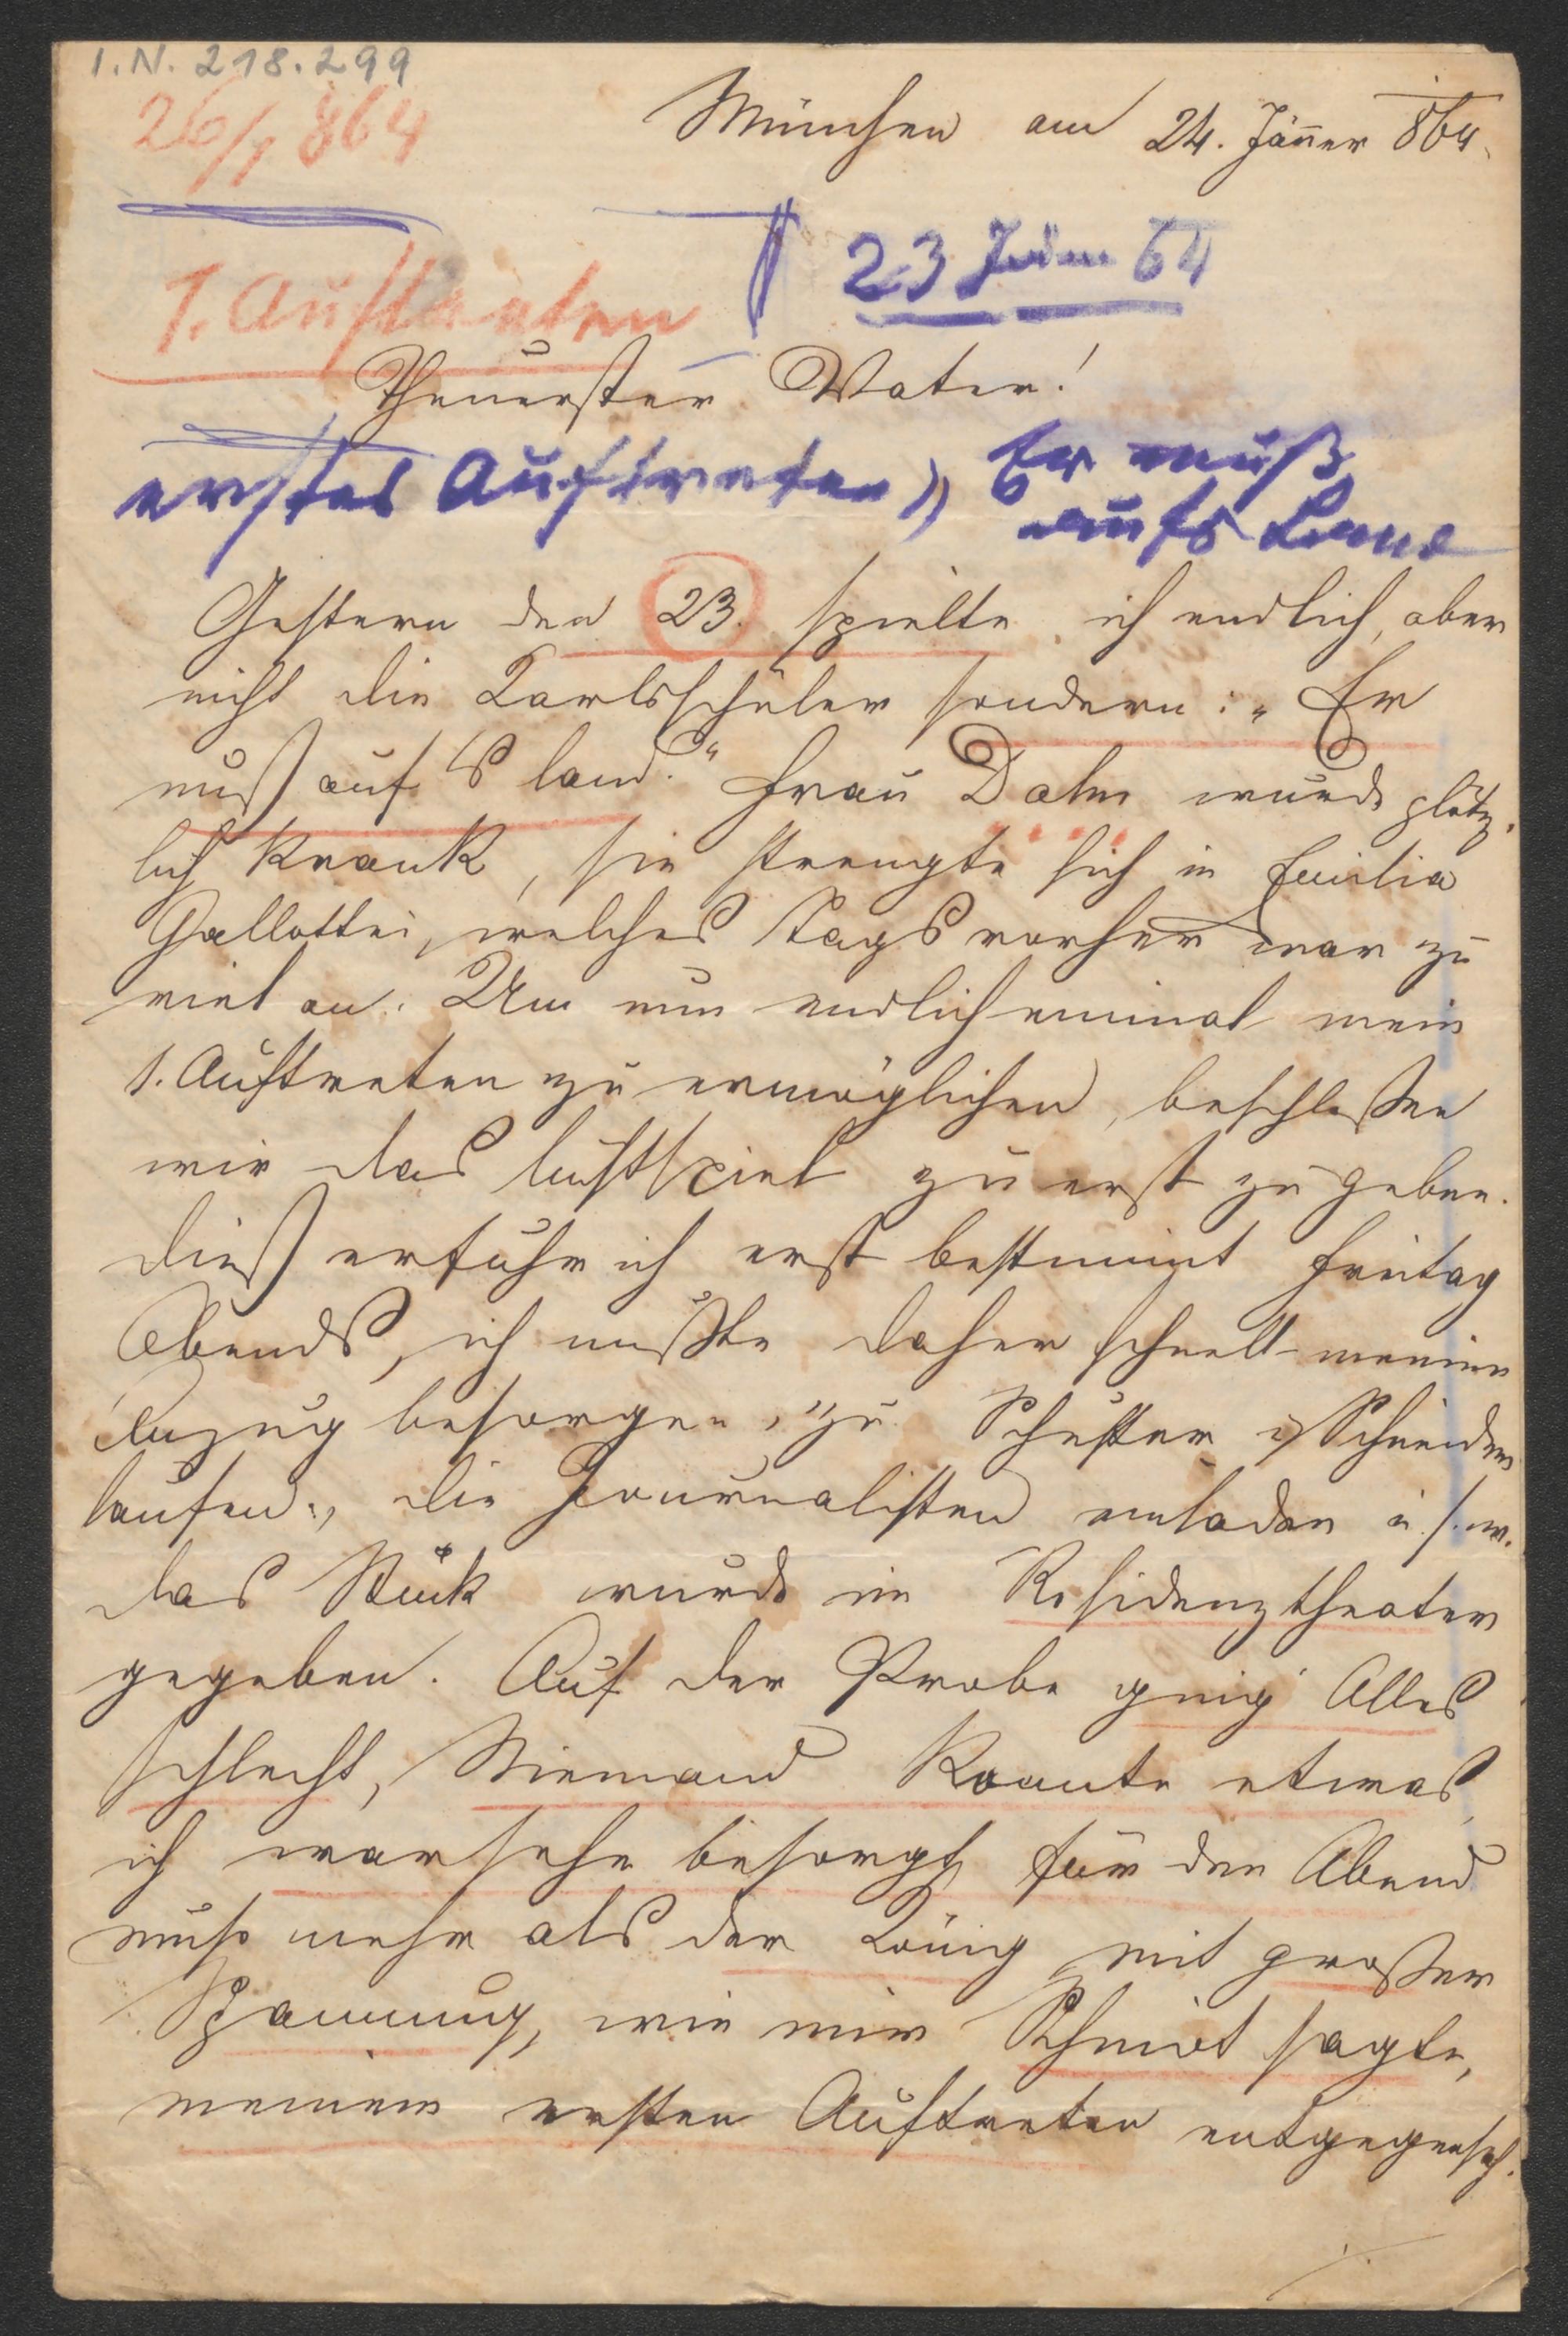 I.N. 218.299
26/1 864
München am 24. Jänner 864.
23 Jän 64
1. Auftreten
Theuerster Vater!
erstes Auftreten, Er muß
aufs Land
Gestern den 23. spielte ich endlich, aber
nicht die Karlsschüler sondern: „Er
muß auf's Land." Frau Dahn wurde plötz-
lich krank, sie strengte sich in Emilia
Gallotti, welches tags vorher war zu
viel an. Um nun endlich einmal mein
1. Auftreten zu ermöglichen, beschloßen
wir das Lustspiel zu erst zu geben.
Dieß erfuhr ich erst bestimmt Freitag
Abends, ich mußte daher schnell meinen
Anzug besorgen, zu Schuster u Schneider
laufen, die Journalisten einladen u. s. w.
Das Stück wurde im Residenztheater
gegeben. Auf der Probe ging Alles
schlecht, Niemand konnte etwas,
ich war sehr besorgt für den Abend
mehr als der König mit großer
Spannung, wie mir Schmidt sagte,
meinem ersten Auftreten entgegensah.